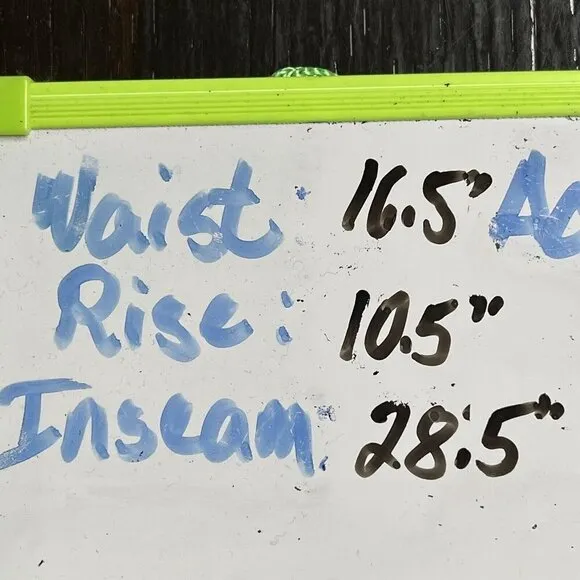 Waist: 16.5" Ac
Rise: 10.5"
Inseam: 28.5"